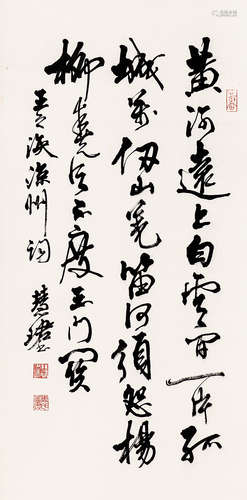 黄河遠上白雲間一片孤
城萬仞山羌笛何須怨楊
柳春光不度玉門關
王之渙涼州詞 慧珺